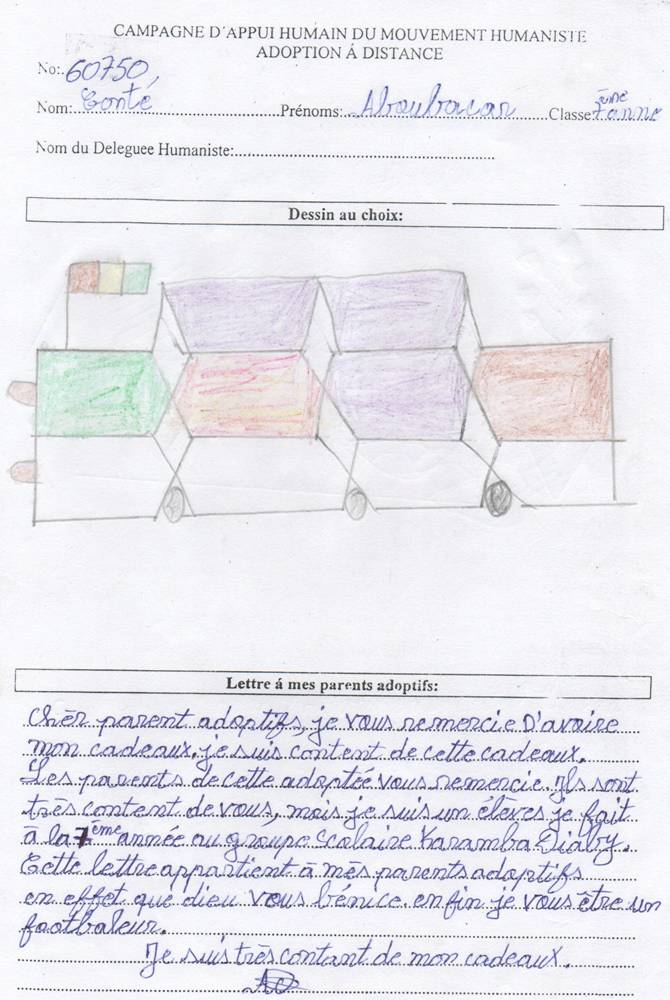 CAMPAGNE D'APPUI HUMAIN DU MOUVEMENT HUMANISTE
ADOPTION Á DISTANCE
No:.60750,
Nom:.Conté Prénoms:.Aboubacar Classe 7ème anne
Nom du Deleguee Humaniste:
Dessin au choix:
Lettre á mes parents adoptifs:
Chèr parent adoptifs, je vous remercie D'avoire
mon cadeaux. je suis content de cette cadeaux.
Les parents de cette adoptée vous remercie. Ils sont
très content de vous, mais je suis un élèves je fait
à la 7ème année au groupe scolaire Karamba Diaby.
Cette lettre appartient à mès parents adoptifs
en effet que dieu vous bénice. enfin je vous être un
footbaleur.
Je suis très contant de mon cadeaux.
AC